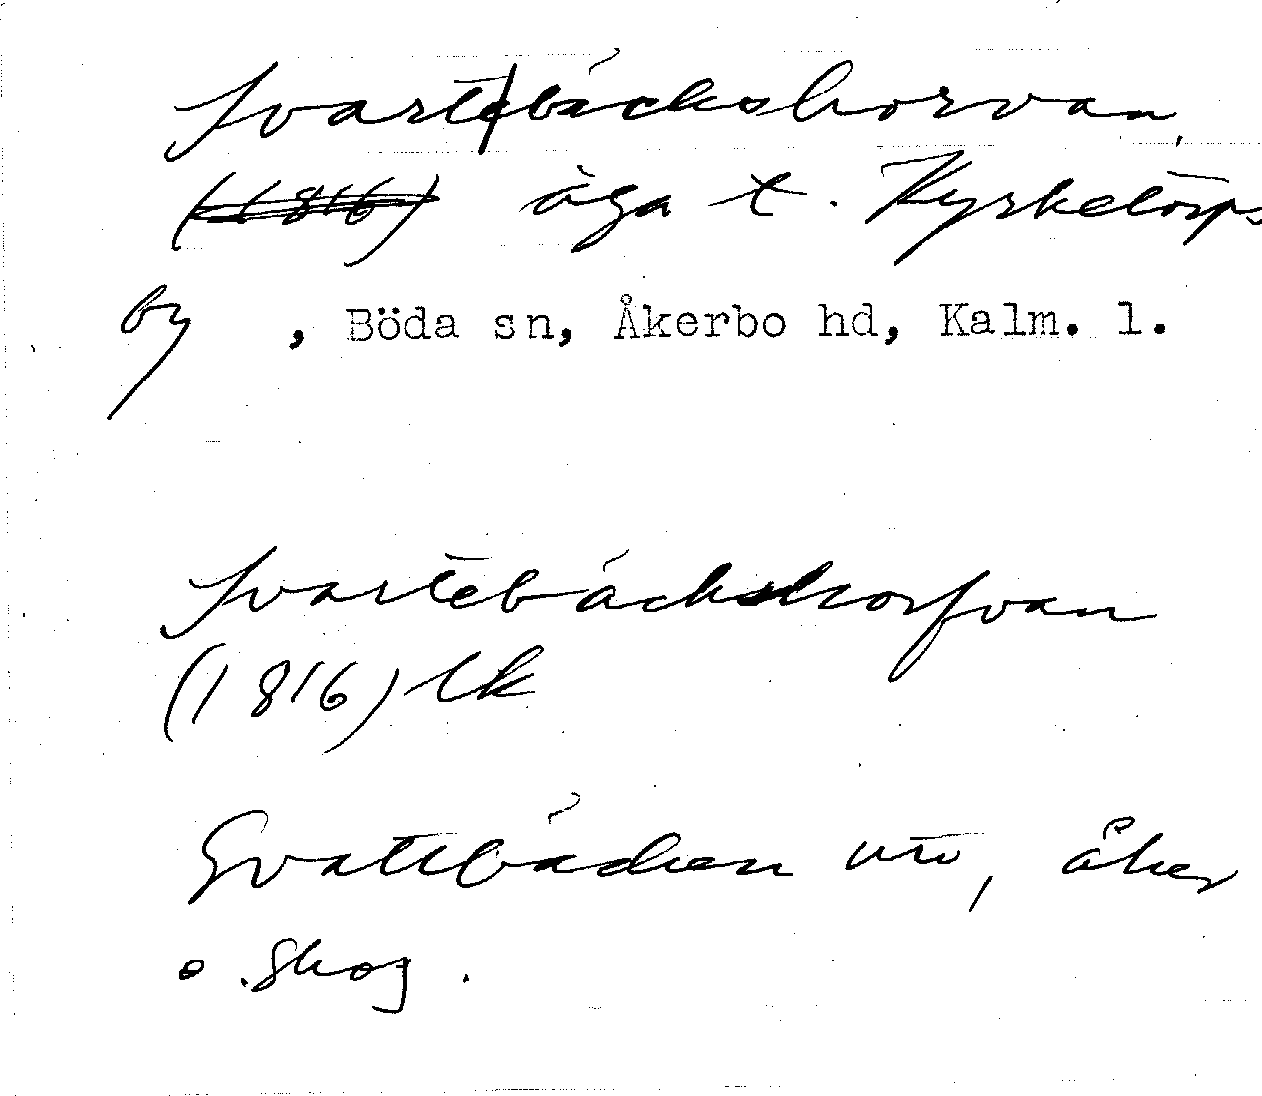 Svartbäckskorvan,
(1816) äga t. Kyrketorps
by , Böda sn, Åkerbo hd, Kalm. l.
Svartebäckskorfvan
(1816) lk
Svattebäcken utv, åker
o. skog.